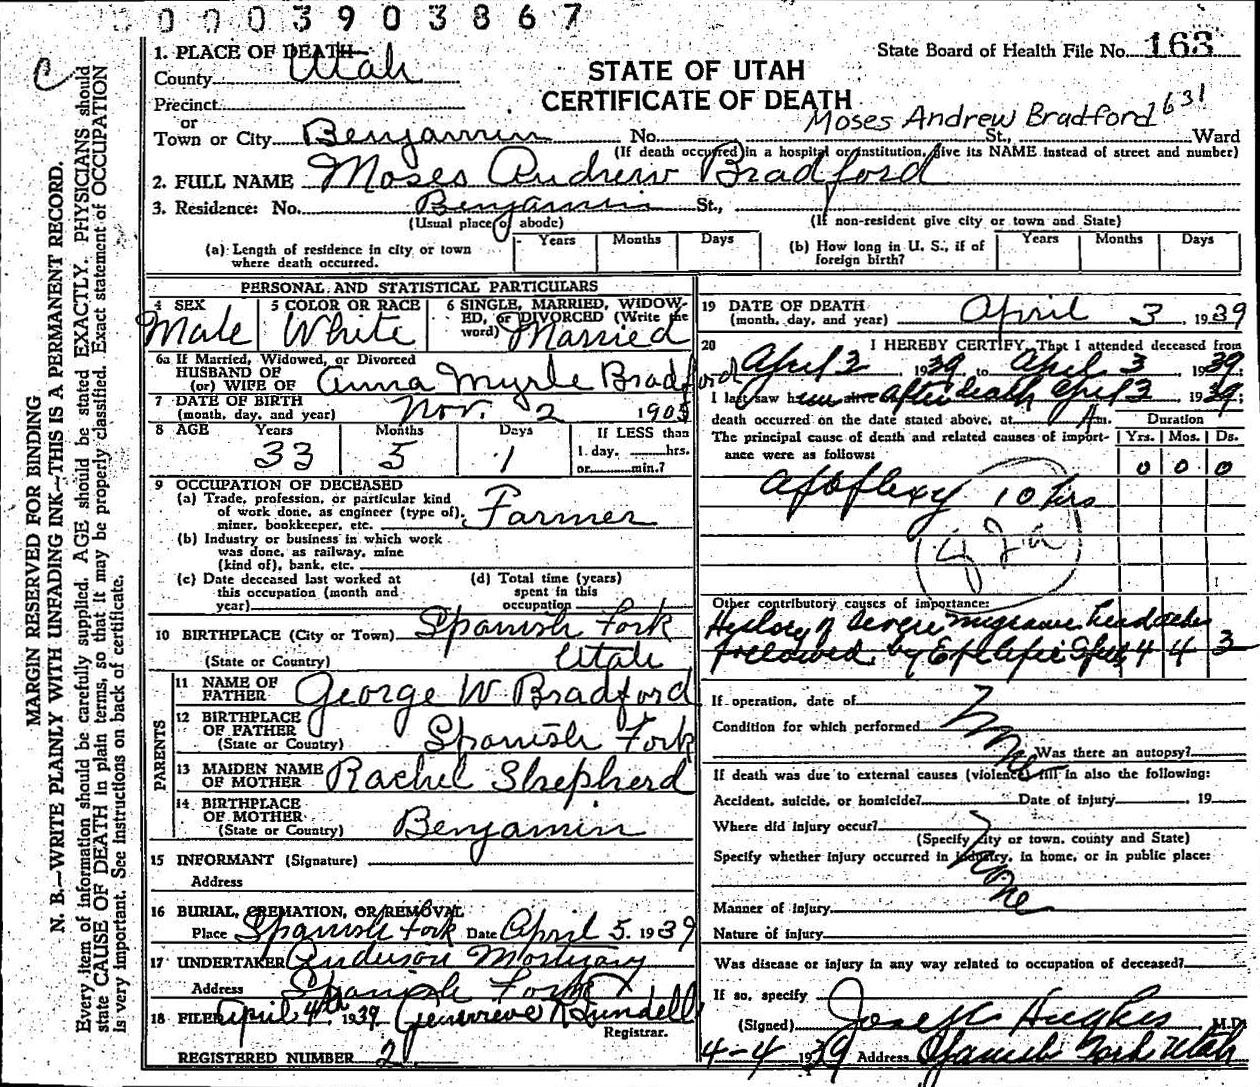 0003903867
C
MARGIN RESERVED FOR BINDING
N. B.—WRITE PLAINLY WITH UNFADING INK—THIS IS A PERMANENT RECORD.
Every item of information should be carefully supplied. AGE should be stated EXACTLY. PHYSICIANS should
state CAUSE OF DEATH in plain terms, so that it may be properly classified. Exact statement of OCCUPATION
is very important. See instructions on back of certificate.
1. PLACE OF DEATH
State Board of Health File No. 163
County Utah
STATE OF UTAH
CERTIFICATE OF DEATH
Precinct
or
Moses Andrew Bradford 631
Town or City Benjamin No. St., Ward
(If death occurred in a hospital or institution, give its NAME instead of street and number)
2. FULL NAME Moses Andrew Bradford
3. Residence: No. Benjamin St.,
(Usual place of abode) (If non-resident give city or town and State)
(a) Length of residence in city or town where death occurred. Years Months Days
(b) How long in U. S., if of foreign birth? Years Months Days
PERSONAL AND STATISTICAL PARTICULARS
4 SEX Male
5 COLOR OR RACE White
6 SINGLE, MARRIED, WIDOWED, or DIVORCED (Write the word) Married
6a If Married, Widowed, or Divorced
HUSBAND OF
(or) WIFE OF Anna Myrle Bradford
7 DATE OF BIRTH
(month, day, and year) Nov. 2 1905
8 AGE Years Months Days If LESS than
33 5 1 1 day, hrs.
or min.?
9 OCCUPATION OF DECEASED
(a) Trade, profession, or particular kind
of work done, as engineer (type of),
miner, bookkeeper, etc. Farmer
(b) Industry or business in which work
was done, as railway, mine
(kind of), bank, etc.
(c) Date deceased last worked at
this occupation (month and
year)
(d) Total time (years)
spent in this
occupation
10 BIRTHPLACE (City or Town) Spanish Fork
(State or Country) Utah
PARENTS
11 NAME OF
FATHER George W Bradford
12 BIRTHPLACE
OF FATHER
(State or Country) Spanish Fork
13 MAIDEN NAME
OF MOTHER Rachel Shepherd
14 BIRTHPLACE
OF MOTHER
(State or Country) Benjamin
15 INFORMANT (Signature)
Address
16 BURIAL, CREMATION, OR REMOVAL
Place Spanish Fork Date April 5. 1939
17 UNDERTAKER Anderson Mortuary
Address Spanish Fork
18 FILED April 4th 1939 Genevieve R Lundell
Registrar.
REGISTERED NUMBER 2
19 DATE OF DEATH
(month, day, and year) April 3 1939
20 I HEREBY CERTIFY, That I attended deceased from
April 2, 1939 to April 3, 1939
I last saw him alive after death April 3, 1939;
death occurred on the date stated above, at A m. Duration
The principal cause of death and related causes of importance were as follows: Yrs. Mos. Ds.
0 0 0
Apoplexy 10 hrs
Other contributory causes of importance:
History of severe migraine headaches
followed by Epileptic 4 4 3
If operation, date of
Condition for which performed None
Was there an autopsy?
If death was due to external causes (violence) fill in also the following:
Accident, suicide, or homicide? Date of injury 19
Where did injury occur?
(Specify city or town, county and State)
Specify whether injury occurred in industry, in home, or in public place:
None
Manner of injury
Nature of injury
Was disease or injury in any way related to occupation of deceased?
If so, specify
(Signed) Joseph Hughes M.D.
4-4 1939 Address Spanish Fork Utah